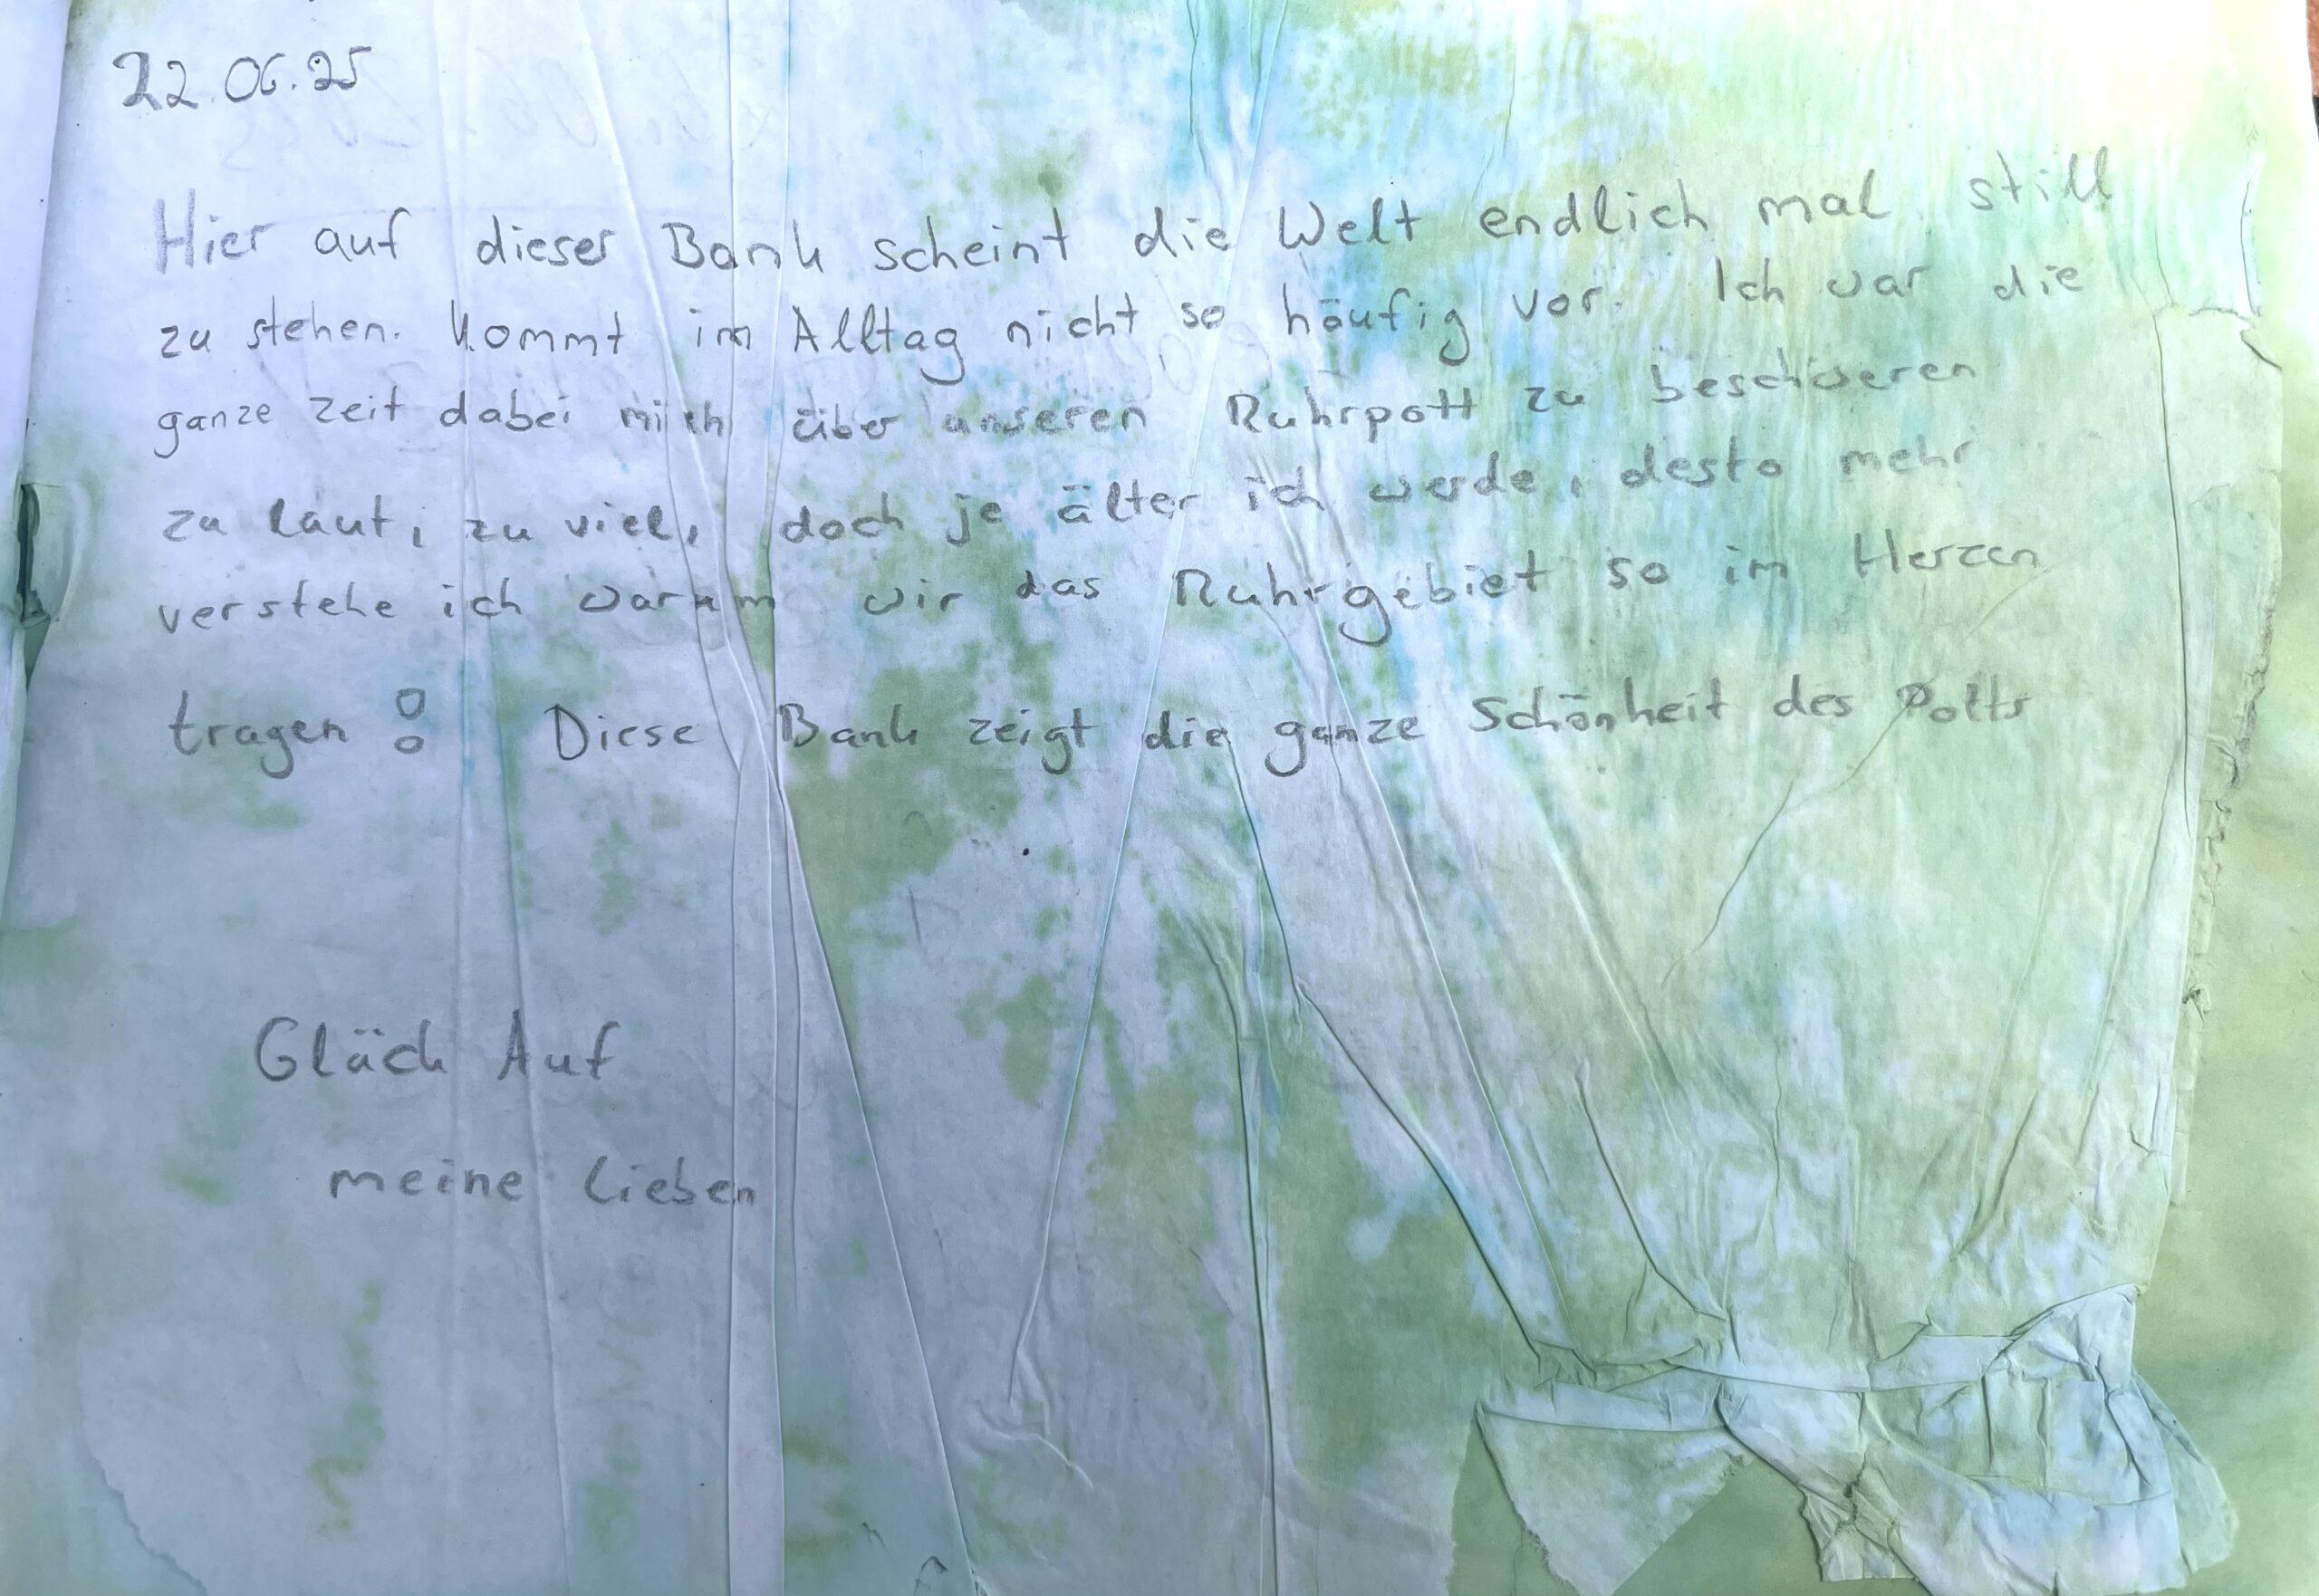 22.06.25
Hier auf dieser Bank scheint die Welt endlich mal still
zu stehen. Kommt im Alltag nicht so häufig vor. Ich war die
ganze zeit dabei mich über unseren Ruhrpott zu beschweren
zu laut, zu viel, doch je älter ich werde, desto mehr
verstehe ich warum wir das Ruhrgebiet so im Herzen
tragen! Diese Bank zeigt die ganze Schönheit des Potts
Glück Auf
meine lieben